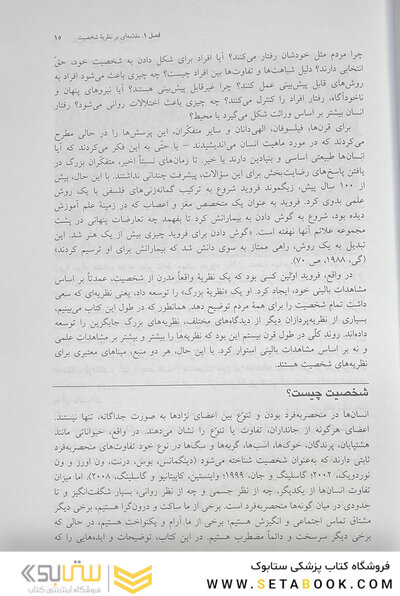 فصل ۱. مقدمه‌ای بر نظریهٔ شخصیت ۱۵
چرا مردم مثل خودشان رفتار می‌کنند؟ آیا افراد برای شکل دادن به شخصیت خود، حق
انتخابی دارند؟ دلیل شباهت‌ها و تفاوت‌ها بین افراد چیست؟ چه چیزی باعث می‌شود افراد به
روش‌های قابل پیش‌بینی عمل کنند؟ چرا غیرقابل پیش‌بینی هستند؟ آیا نیروهای پنهان و
ناخودآگاه، رفتار افراد را کنترل می‌کنند؟ چه چیزی باعث اختلالات روانی می‌شود؟ رفتار
انسان بیشتر بر اساس وراثت شکل می‌گیرد یا محیط؟
برای قرن‌ها، فیلسوفان، الهی‌دانان و سایر متفکّران، این پرسش‌ها را در حالی مطرح
می‌کردند که در مورد ماهیت انسان می‌اندیشیدند – یا حتّی به این فکر می‌کردند که آیا
انسان‌ها طبیعتی اساسی و بنیادین دارند یا خیر. تا زمان‌های نسبتاً اخیر، متفکّران بزرگ در
یافتن پاسخ‌های رضایت‌بخش برای این سؤالات، پیشرفت چندانی نداشتند. با این حال، بیش
از ۱۰۰ سال پیش، زیگموند فروید شروع به ترکیب گمانه‌زنی‌های فلسفی با یک روش
علمی بدوی کرد. فروید به عنوان یک متخصص مغز و اعصاب که در زمینهٔ علم آموزش
دیده بود، شروع به گوش دادن به بیمارانش کرد تا بفهمد چه تعارضات پنهانی در پشت
مجموعه علائم آنها نهفته است. «گوش دادن برای فروید چیزی بیش از یک هنر شد. این
تبدیل به یک روش، راهی ممتاز به سوی دانش شد که بیمارانش برای او ترسیم کردند»
(گی، ۱۹۸۸، ص ۷۰).
در واقع، فروید اوّلین کسی بود که یک نظریهٔ واقعاً مدرن از شخصیت، عمدتاً بر اساس
مشاهدات بالینی خود، ایجاد کرد. او یک «نظریهٔ بزرگ» را توسعه داد، یعنی نظریه‌ای که سعی
داشت تمام شخصیت را برای همهٔ مردم توضیح دهد. همانطور که در طول این کتاب می‌بینیم،
بسیاری از نظریه‌پردازان دیگر از دیدگاه‌های مختلف، نظریه‌های بزرگ جایگزین را توسعه
داده‌اند. روند کلّی در طول قرن بیستم این بود که نظریه‌ها را بیشتر و بیشتر بر مشاهدات علمی
و نه بر اساس مشاهدات بالینی استوار کرد. با این حال، هر دو منبع، مبناهای معتبری برای
نظریه‌های شخصیت هستند.
شخصیت چیست؟
انسان‌ها در منحصربه‌فرد بودن و تنوّع بین اعضای نژادها به صورت جداگانه، تنها نیستند.
اعضای هرگونه از جانداران، تفاوت یا تنوّع را نشان می‌دهند. در واقع، حیواناتی مانند
هشتپایان، پرندگان، خوک‌ها، اسب‌ها، گربه‌ها و سگ‌ها در نوع خود تفاوت‌های منحصربه‌فرد
ثابتی دارند که به‌عنوان شخصیت شناخته می‌شود (دینگمانس، بوس، درنت، ون اورز و ون
نوردویک، ۲۰۰۲؛ گاسلینگ و جان، ۱۹۹۹؛ واینستین، کاپیتانیو و گاسلینگ، ۲۰۰۸). اما میزان
تفاوت انسان‌ها از یکدیگر، چه از نظر جسمی و چه از نظر روانی، بسیار شگفت‌انگیز و تا
حدودی در میان گونه‌ها منحصربه‌فرد است. برخی از ما ساکت و درون‌گرا هستیم، برخی دیگر
مشتاق تماس اجتماعی و انگیزش هستیم؛ برخی از ما آرام و یکنواخت هستیم، در حالی که
برخی دیگر سرسخت و دائماً مضطرب هستیم. در این کتاب، توضیحات و ایده‌هایی را که
ستابوک
فروشگاه اینترنتی کتاب
فروشگاه کتاب پزشکی ستابوک
WWW.SETABOOK.COM